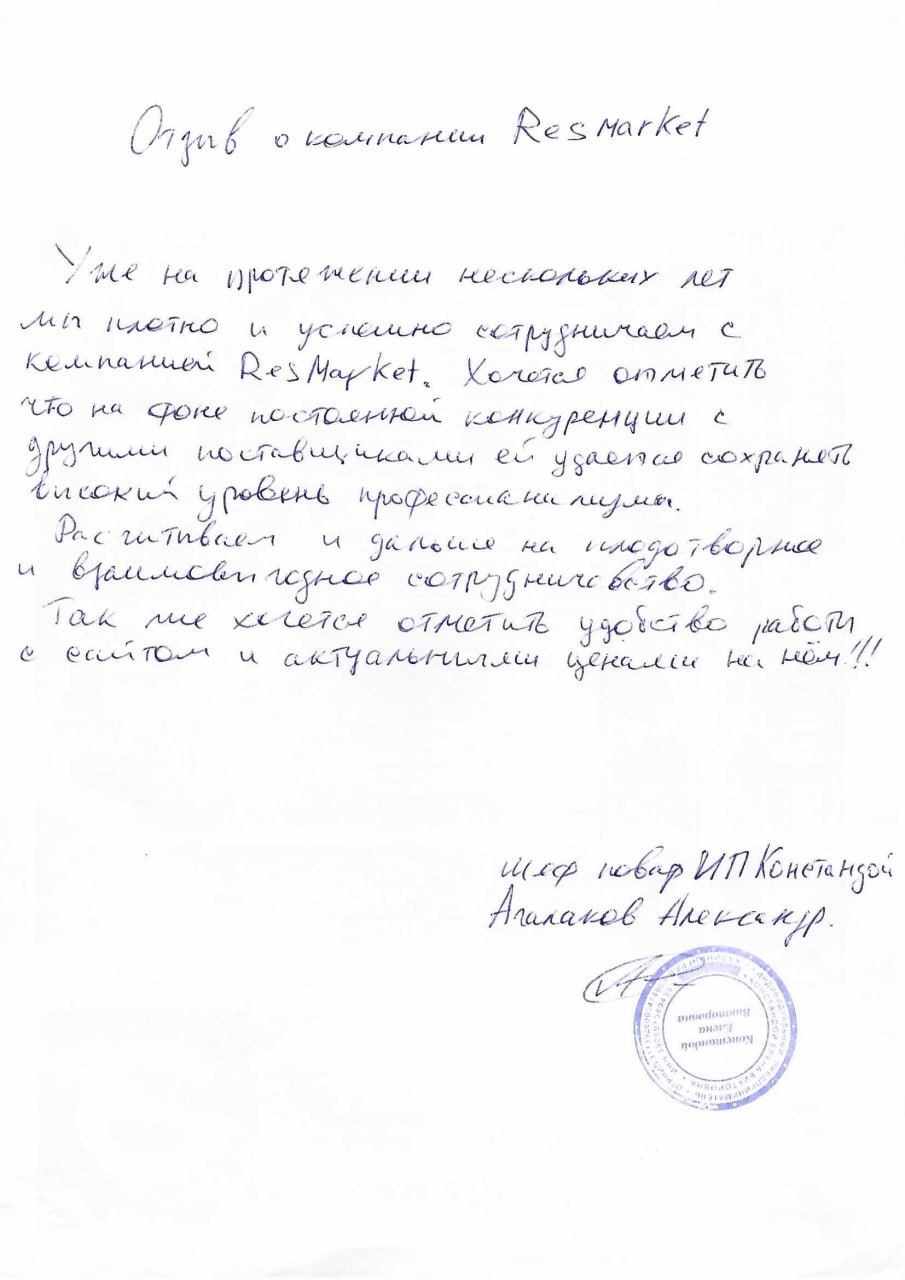 Отзыв о компании ResMarket
Уже на протяжении нескольких лет
мы плотно и успешно сотрудничаем с
компанией ResMarket. Хочется отметить
что на фоне постоянной конкуренции с
другими поставщиками ей удается сохранять
высокий уровень профессионализма.
Расчитываем и дальше на плодотворное
и взаимовыгодное сотрудничество.
Так же хочется отметить удобство работы
с сайтом и актуальными ценами на нём!!!
шеф повар ИП Константдой
Агалаков Александр.
ИНДИВИДУАЛЬНЫЙ ПРЕДПРИНИМАТЕЛЬ
КОНСТАНДОЙ ЕЛЕНА ВИКТОРОВНА
Констандой
Елена
Викторовна